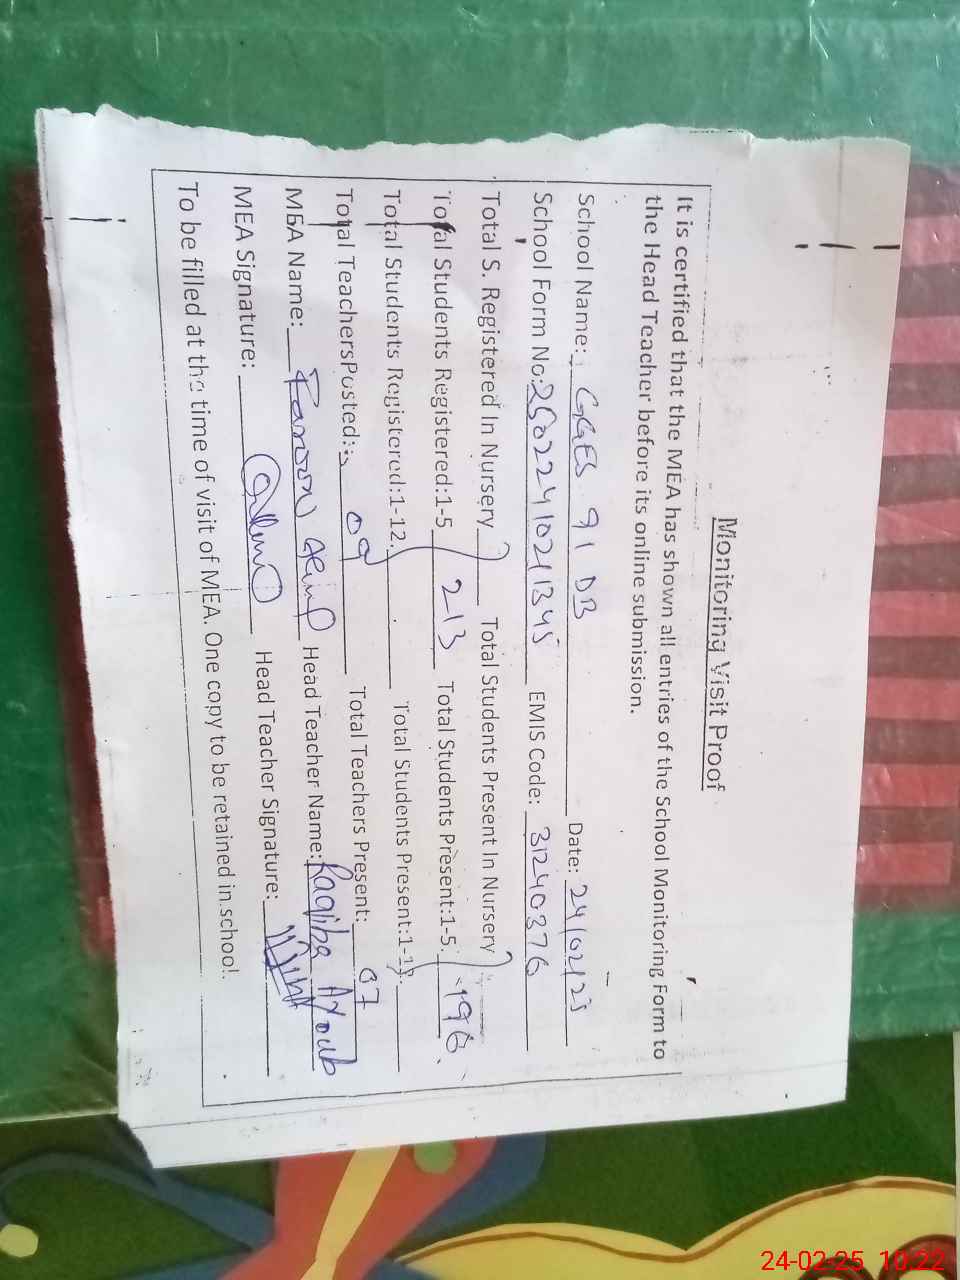 Monitoring Visit Proof
It is certified that the MEA has shown all entries of the School Monitoring Form to
the Head Teacher before its online submission.
School Name: GGES 91 DB Date: 24/02/25
School Form No: 25022410211345 EMIS Code: 31240376
Total S. Registered In Nursery Total Students Present In Nursery
Total Students Registered:1-5 213 Total Students Present:1-5. 196
Total Students Registered:1-12. Total Students Present:1-12.
Total TeachersPosted: 09 Total Teachers Present: 07
MEA Name: Head Teacher Name: Raqiba Ayoub
MEA Signature: Head Teacher Signature:
To be filled at the time of visit of MEA. One copy to be retained in school.
24-02-25 10:22